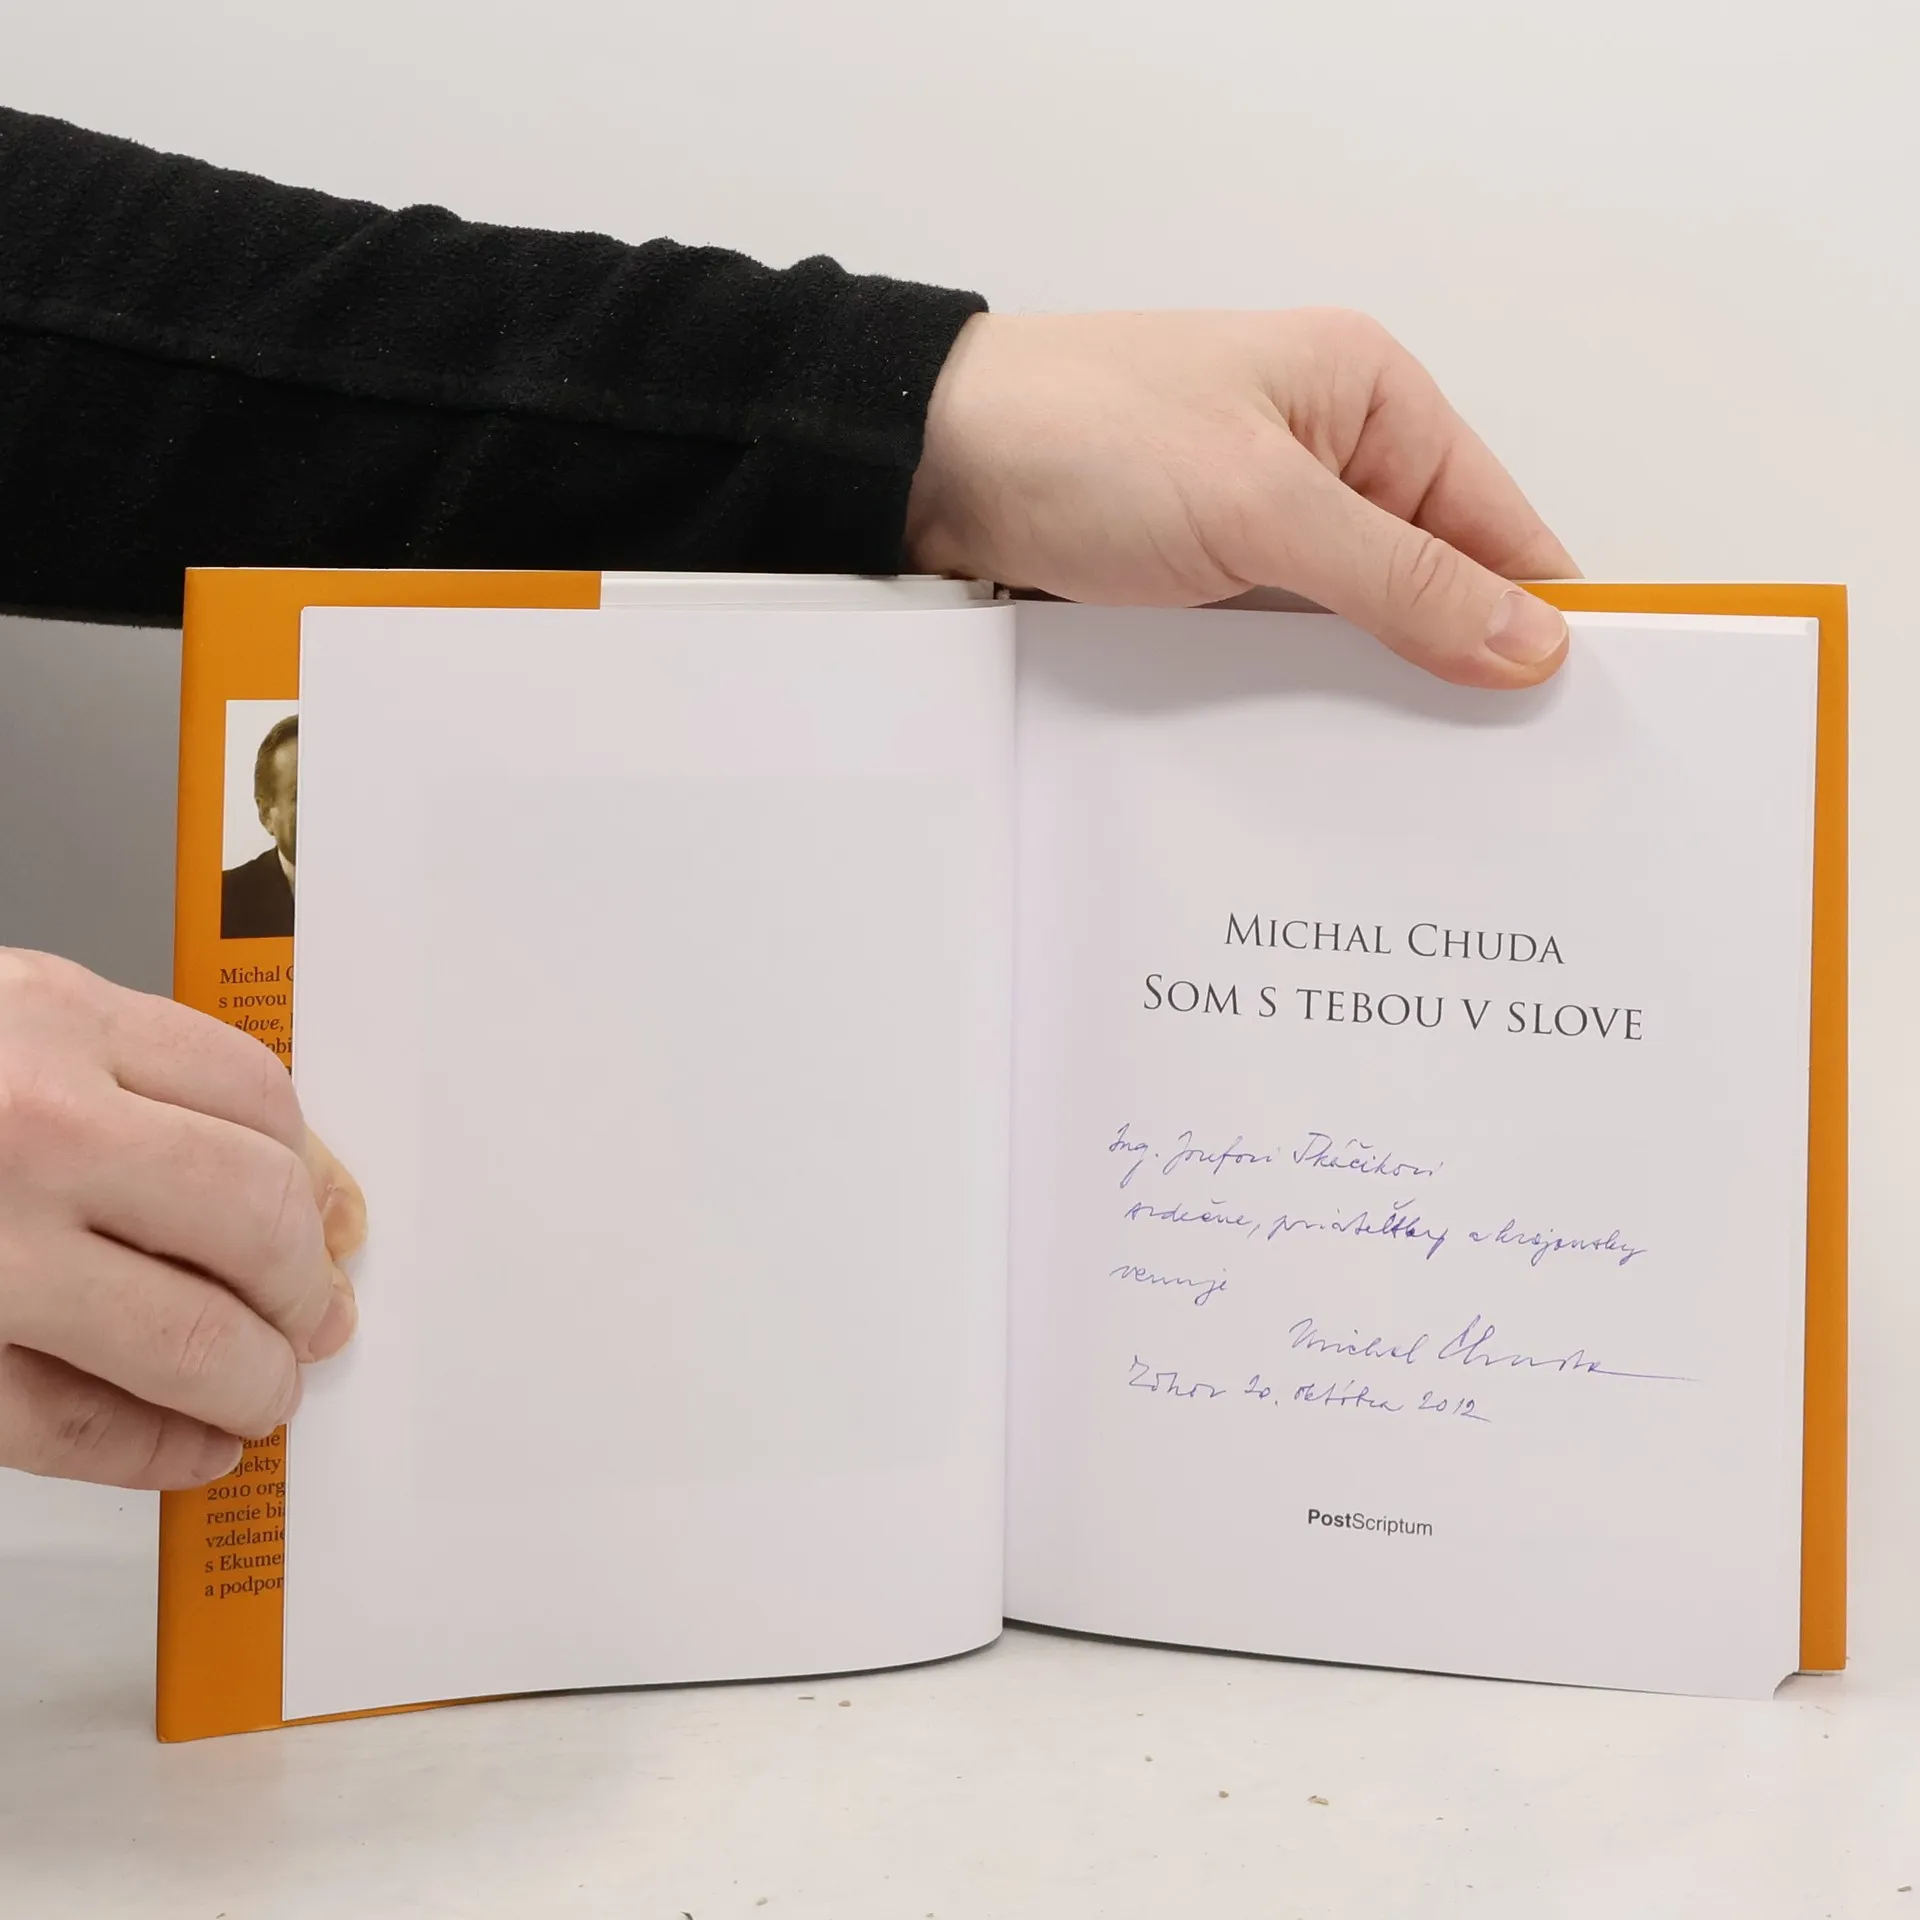 Michal
s novou
slove,
2010 org
rencie bi
vzdelanie
s Ekume
a podpor
MICHAL CHUDA
SOM S TEBOU V SLOVE
Ing. Jozefovi Tkáčikovi
srdečne, priateľsky a krajansky
venuje
Michal Chuda
Zohor 20. októbra 2012
PostScriptum